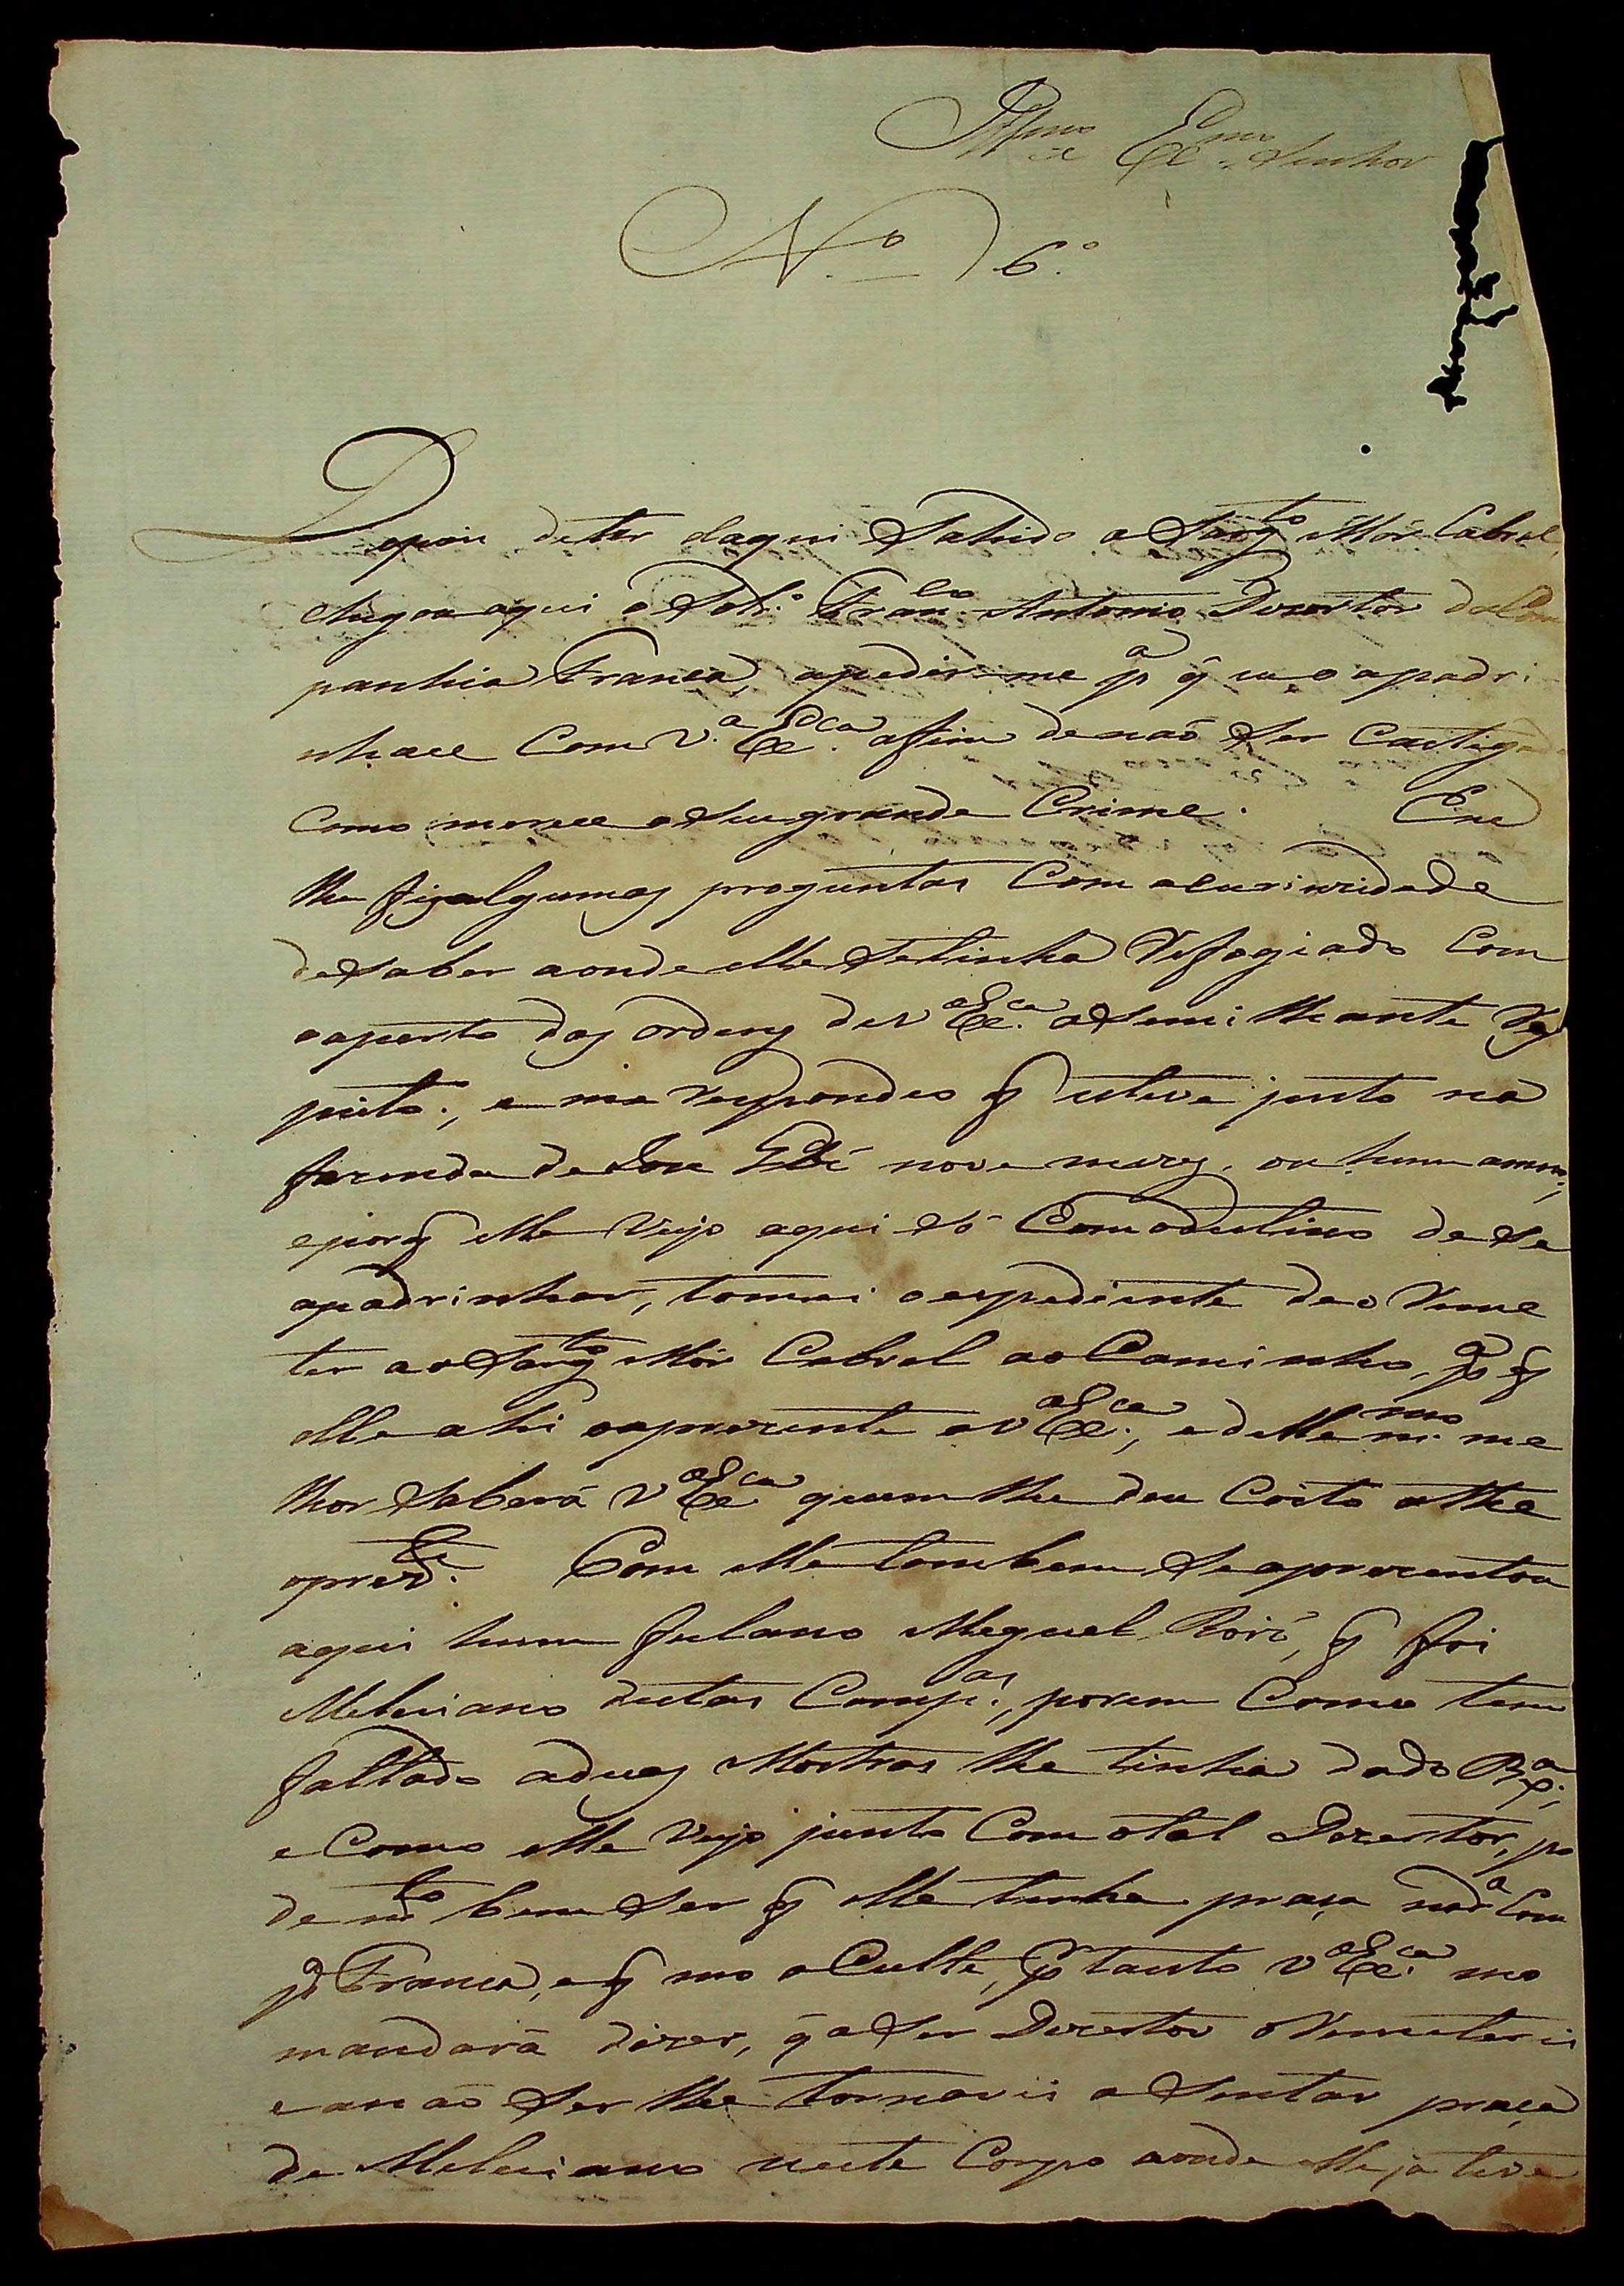 Illmo e Exmo Senhor
N.o 6.o
Depois de ter daqui Sahido o Sargto Mór Cabral,
chegou aqui o Sold.o Franco Antonio Dezertor da Com
panhia Franca, apedir-me pa q̃ eu o apadri
nhace Com V.a Exca afim de naõ Ser Castigado
Como merece o Seu grande Crime. Eu
lhe fiz algumas preguntas Com acuriuzidade
de Saber aonde elle Setinha Refugiado Com
o aperto das ordens de V Exca a Semilhante Res
peito, e me Respondeo q̃ esteve perto na
fazenda de Joze nove mezes, ou hum anno,
e porq̃ elle Veyo aqui só Com odestino de Se
apadrinhar, tomei o espediente de o Reme
ter ao Sargto Mór Cabral ao Caminho, pa q̃
elle ahi o aprezente a V Exca, e delle mmo me
lhor Saberá V Exca quem lhe deu Coito athe
oprezte. Com elle tambem Se aprezentou
aqui hum fulano Meguel, q̃ foi
Meleciano destas Compas, porem Como tem
faltado aduas Mostras lhe tinha dado Bxa,
e Como elle Veyo junto Com otal Dezertor, po
de mto bem Ser q̃ elle tenha praça nada Com
pa Franca, e q̃ mo oCulte, pr tanto V Exca me
mandará dizer, q̃ a Ser Dezertor o Remeterei
e anaõ Ser lhe tornarei a Sentar praça
de Meleciano neste Corpo aonde elle ja teve